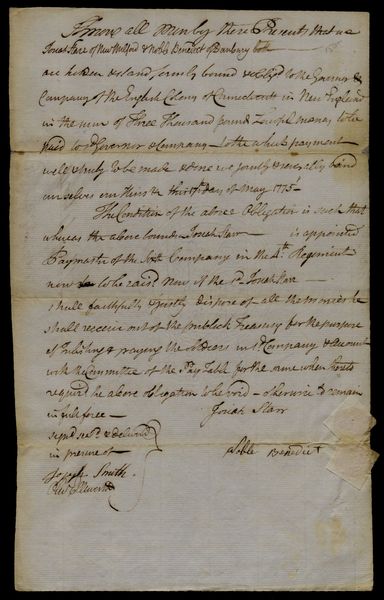 Know all Men by these Presents that we
Josiah Starr of New Milford & Noble Benedict of Danbury both
are holden & stand firmly bound & oblig'd to the Govenor &
Company of the English Colony of Connecticutt in New England
in the sum of Three Thousand pound Lawfull money to be
Paid to sd Governor & Company — to the which payment
well & truly to be made & done we jointly & severally bind
ourselves Day of May 1775 —
The Condition of the above Obligation is such that
whereas the above bounden Josiah Starr — is appointed
Paymaster of the Company in the 4th Regiment
now to be raisd Now if the sd Josiah Starr —
shall faithfully & justly dispose of all the monies he
shall receive out of the publick Treasury for the purpose
of Inlisting & paying the Soldiers in sd Company & Account
with the Committee of the Pay Table for the same when
requird the above obligation to be void — otherwise to remain
in full force —
Josiah Starr
signd seald & deliverd
in presence of
Noble Benedict
Joseph Smith